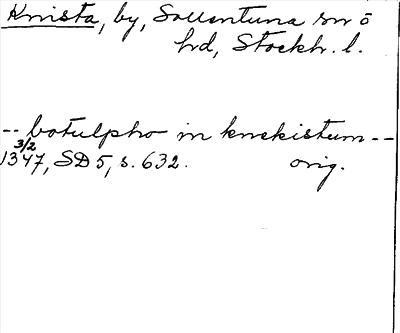 Knista, by, Sollentuna sn o
hd, Stockh. l.
-- botulpho in knekistum --
3/2
1347, SD 5, s. 632. orig.